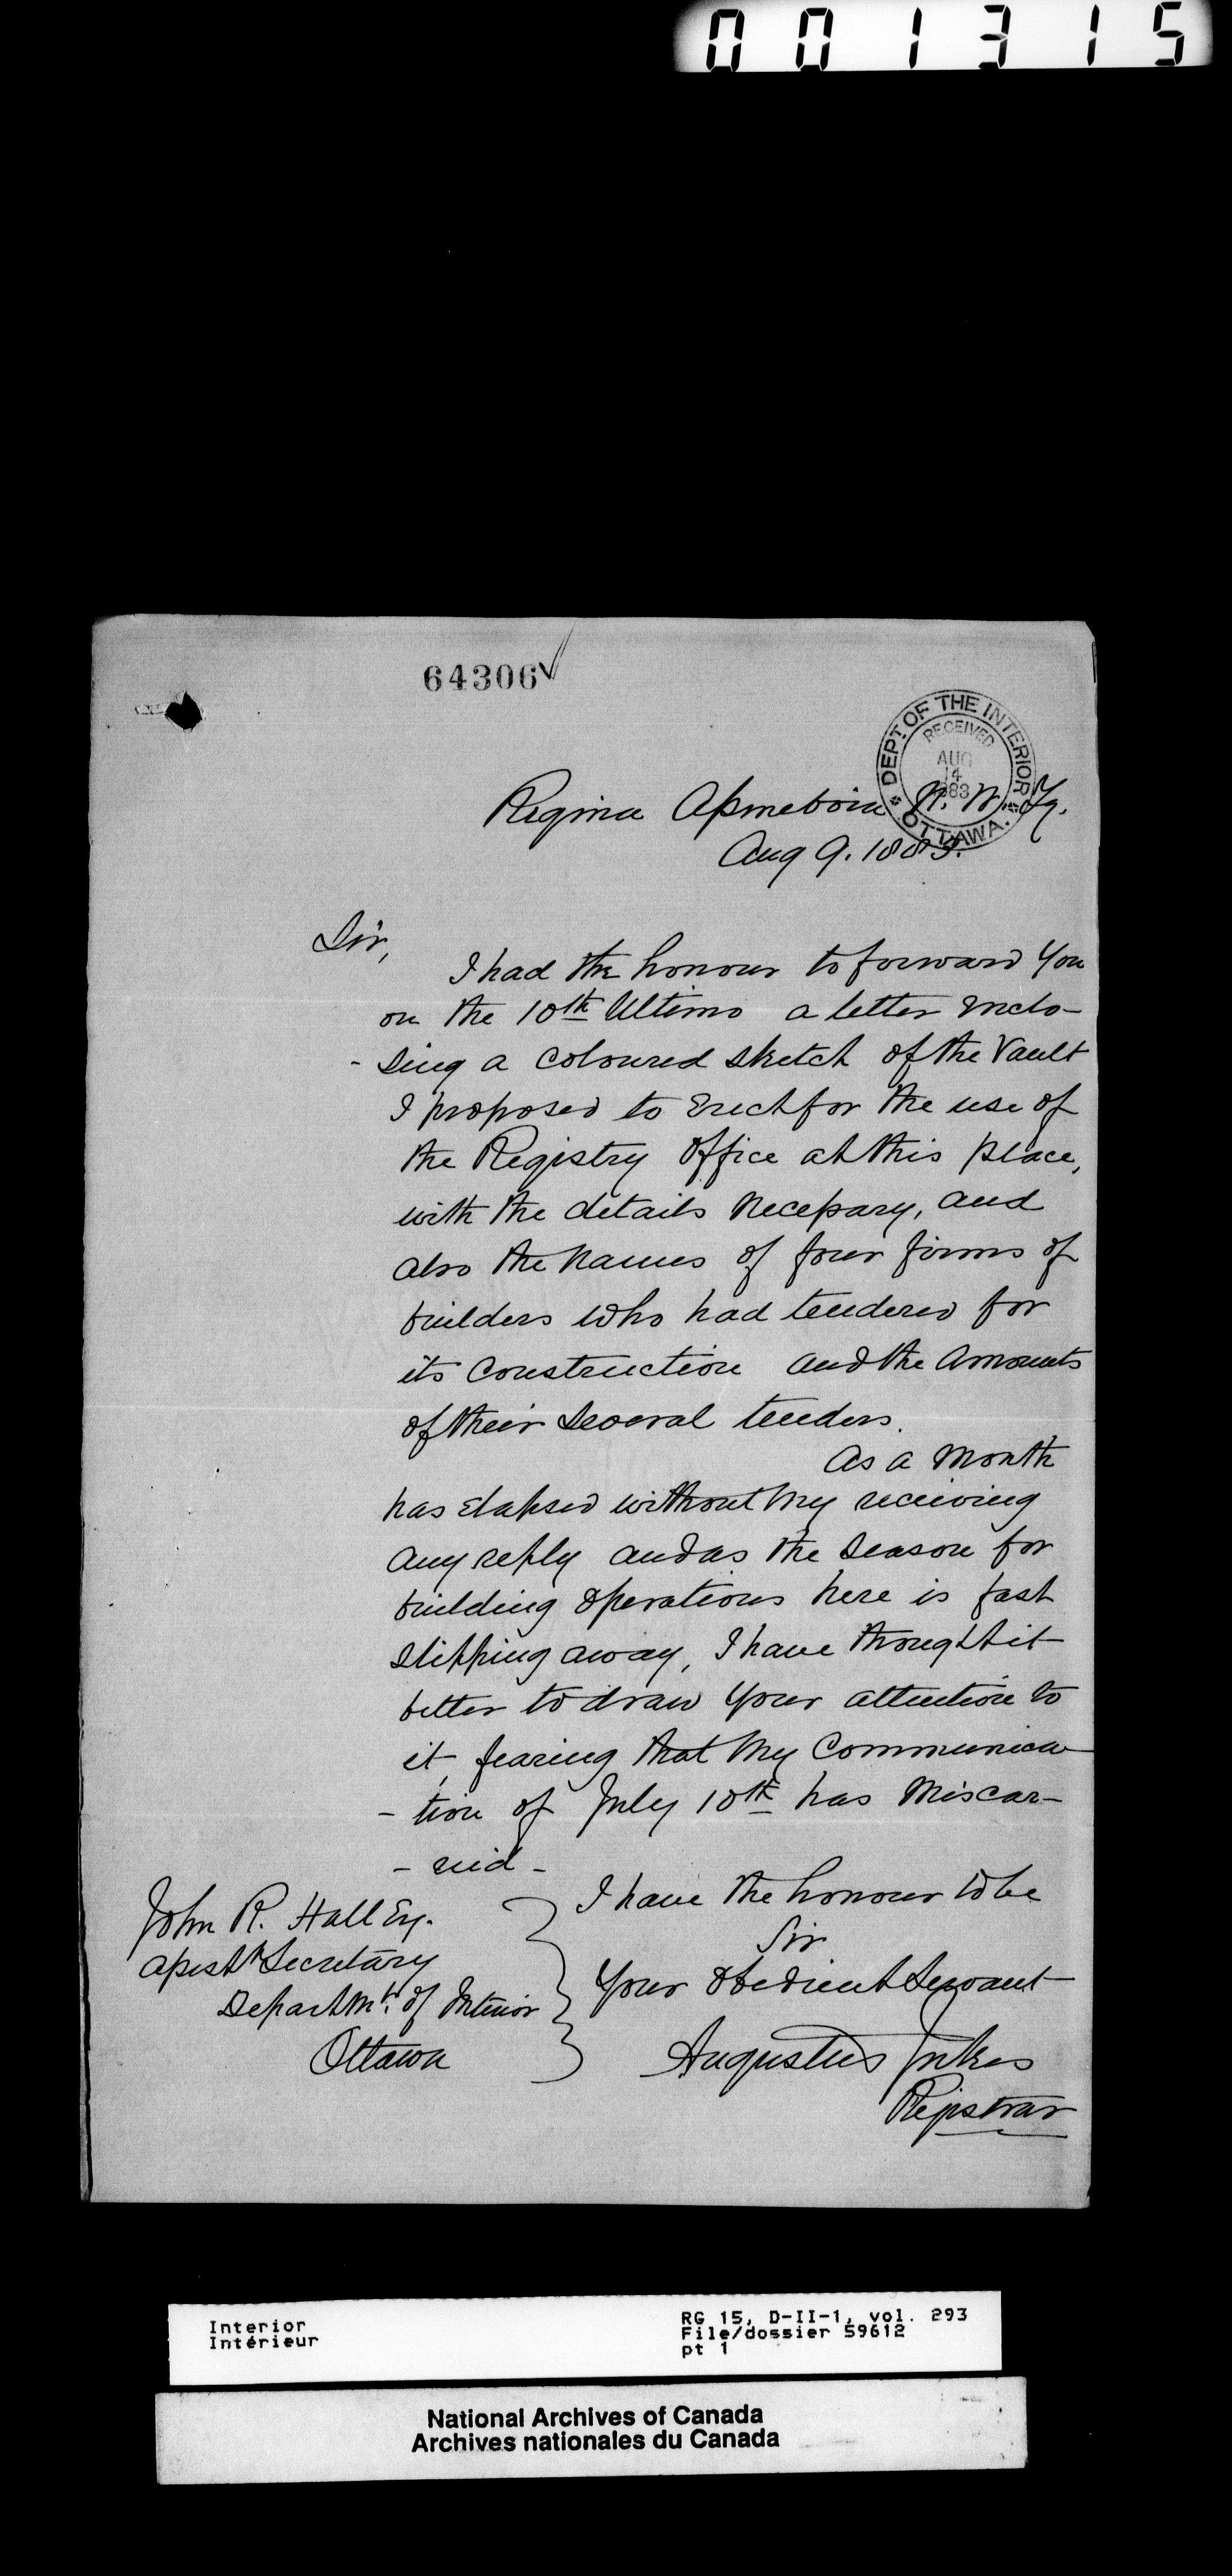 001315
64306 ✓
DEPT. OF THE INTERIOR
RECEIVED
AUG
14
1883
OTTAWA.
Regina Assineboia N.W. Ty.
Aug 9. 1883.
Sir,
I had the honour to forward you
on the 10th Ultimo a letter enclo-
-sing a coloured sketch of the Vault
I proposed to erect for the use of
the Registry Office at this place,
with the details necessary, and
also the names of four firms of
builders who had tendered for
its construction and the amounts
of their several tenders.
As a month
has elapsed without my receiving
any reply and as the season for
building operations here is fast
slipping away, I have thought it
better to draw your attention to
it, fearing that my communica-
-tion of July 10th has miscar-
-ried-
I have the honour to be
Sir
Your obedient Servant
Augustus Jukes
Registrar
John R. Hall Esq.
Assistt Secretary
Departmt. of Interior
Ottawa
Interior
Intérieur
RG 15, D-II-1, vol. 293
File/dossier 59612
pt 1
National Archives of Canada
Archives nationales du Canada